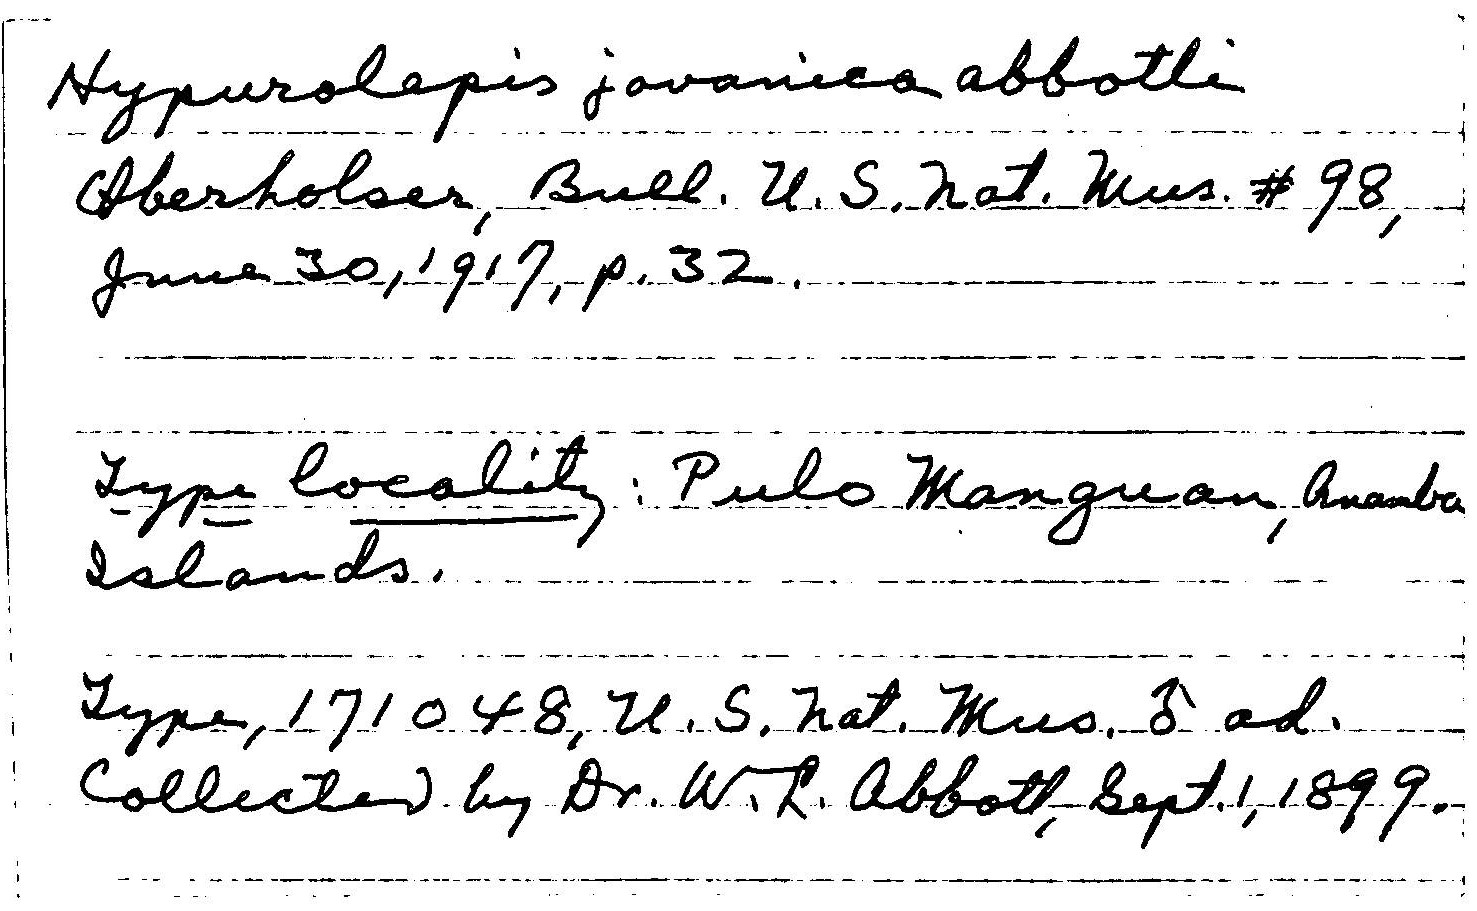 Hypurolepis javanica abbotti
Oberholser, Bull. U.S. Nat. Mus. # 98,
June 30, 1917, p. 32.
Type locality: Pulo Manguan, Anamba
Islands.
Type, 171048, U.S. Nat. Mus. ♂ ad.
Collected by Dr. W. L. Abbott, Sept. 1, 1899.